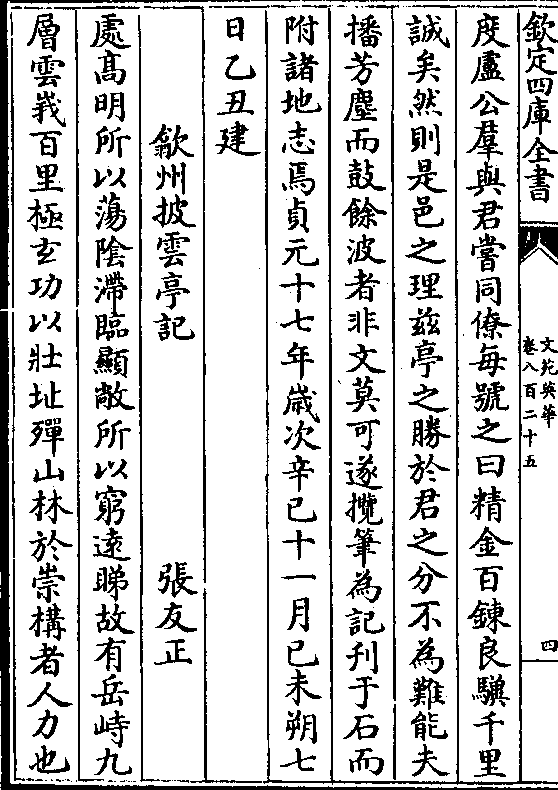 欽定四庫全書
文苑英華
卷八百二十五
四
度廬公羣與君嘗同僚每號之曰精金百鍊良驥千里
誠矣然則是邑之理兹亭之勝於君之分不為難能夫
播芳塵而鼓餘波者非文莫可遂攬筆為記刋于石而
附諸地志焉貞元十七年歲次辛巳十一月已未朔七
日乙丑建
歙州披雲亭記
張友正
處髙明所以蕩陰滯臨顯敞所以窮逺睇故有岳峙九
層雲峩百里極𤣥功以壯址殫山林於崇構者人力也